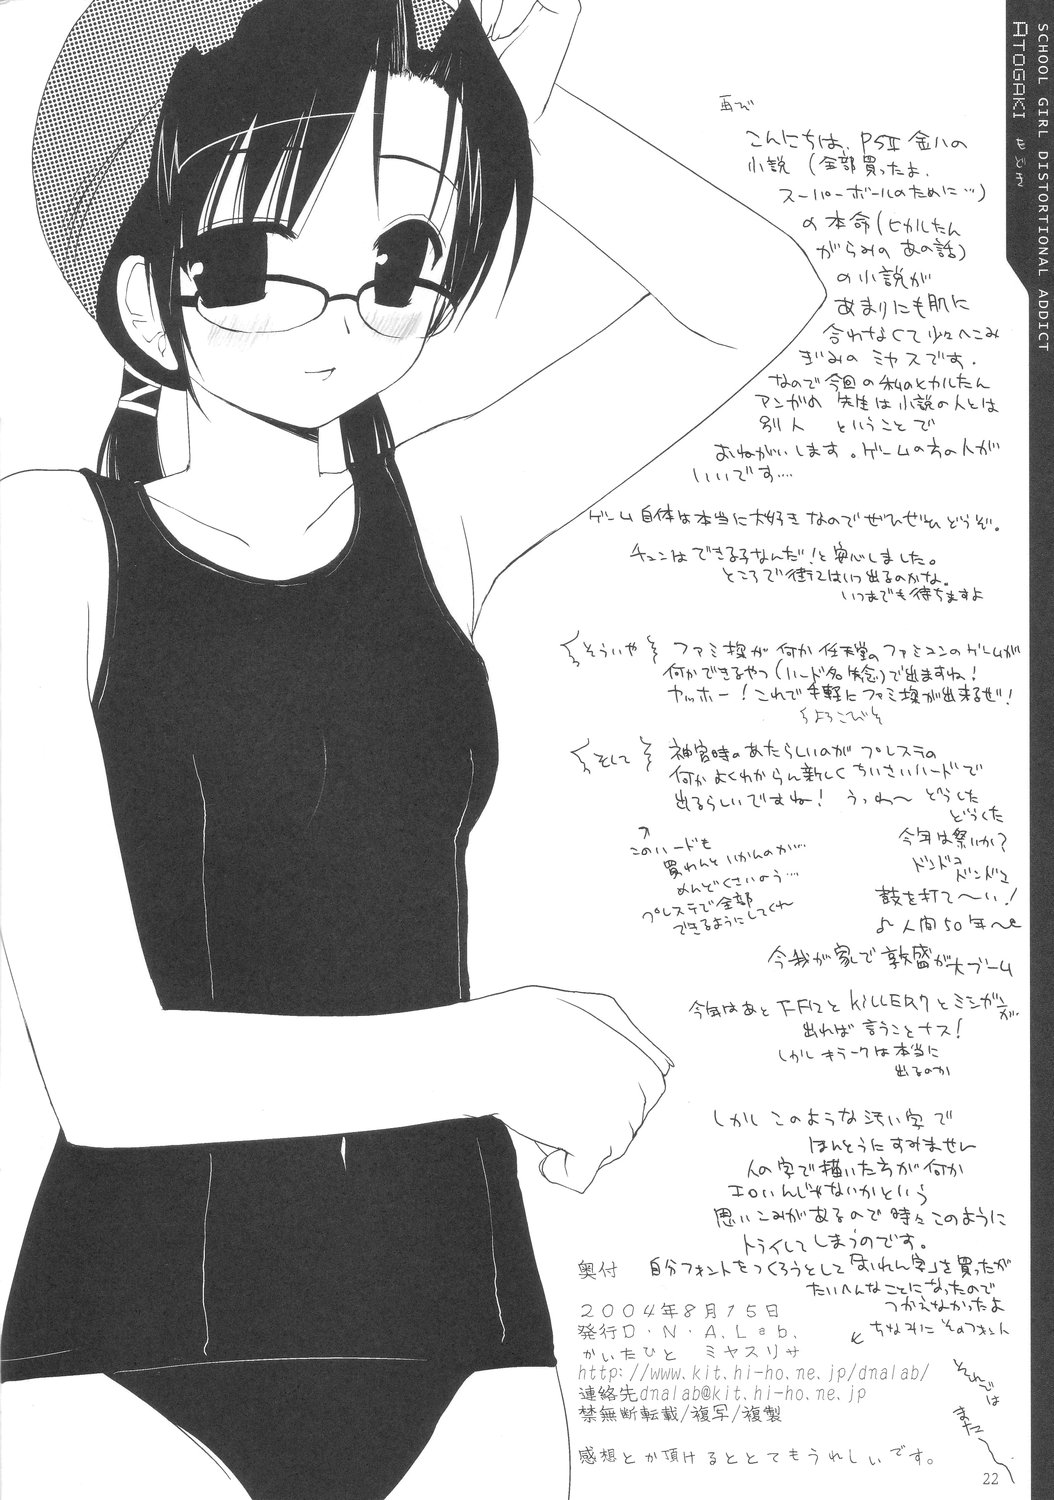 SCHOOL GIRL DISTORTIONAL ADDICT
ATOGAKI
再び
こんにちは、PSⅡ 金八の
小説(全部買ったよ、
スーパーボールのために…)
の本命(ヒカルたん
がらみのあの話)
の小説が
あまりにも肌に
合わなくて少々へこみ
ぎみのミヤスです.
なので今回の私のヒカルたん
アンがの先生は小説の人とは
別人 ということで
おねがいします。ゲームの方の人が
いいです….
ゲーム自体は本当に大好きなのでぜひぜひどうぞ。
チュンはできる子なんだ!と安心しました。
ところで街2はいつ出るのかな。
いつまでも待ちますよ
そういや ファミ探が何か任天堂のファミコンのゲームが
何かできるやつ(ハード名失念)で出ますね!
ヤッホー!これで手軽にファミ探が出来るぜ!
よろこびそ
そして 神宮時のあたらしいのがプレステの
何かよくわからん新しくちいさいハードで
出るらしいですね!うっわ〜どうした
どうした
今年は祭いか?
ドンドコ
ドンドコ
鼓を打て〜い!
♪人間50年〜
↗このハードも
買わんといかんのが…
めんどくさいのう…
プレステで全部
できるようにしてくれ
今我が家で敦盛が大ブーム
今年はあとFF12とKILLER7とミンガが
出れば言うことナス!
しかしキラー7は本当に
出るのか
しかしこのような汚い字で
ほんとうにすみません
人の字で描いた方が何か
エロいんじゃないかという
思いこみがあるので時々このように
トライしてしまうのです。
奥付 自分フォントをつくろうとして「おれん字」を買ったが
たいへんなことになったので
つかえなかったよ
ちなみに そのフォント
2004年8月15日
発行D・N・A.Lab.
かいたひと ミヤスリサ
http://www.kit.hi-ho.ne.jp/dnalab/
連絡先dnalab@kit.hi-ho.ne.jp
禁無断転載/複写/複製
感想とか頂けるととてもうれしいです。
それでは
また
22